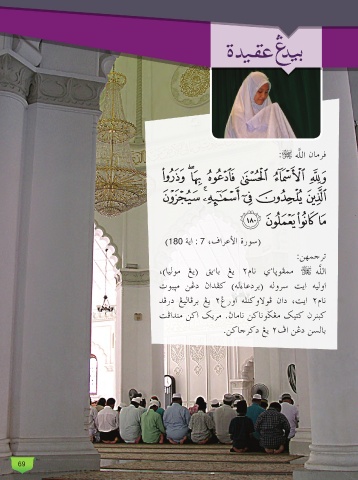 بيدڠ عقيدة
فرمان الله ﷻ:
وَلِلَّهِ ٱلْأَسْمَآءُ ٱلْحُسْنَىٰ فَٱدْعُوهُ بِهَا ۖ وَذَرُوا۟
ٱلَّذِينَ يُلْحِدُونَ فِىٓ أَسْمَـٰٓئِهِۦ ۚ سَيُجْزَوْنَ
مَا كَانُوا۟ يَعْمَلُونَ ١٨٠
(سورة الأعراف، 7 : اية 180)
ترجمهن:
الله ﷻ ممڤوڽاءي نام٢ يڠ بايق (يڠ موليا)،
اوليه ايت سروله (بردعاءله) كڤدان دڠن مڽبوت
نام٢ ايت، دان ڤولاوكنله اورڠ٢ يڠ برڤاليڠ درڤد
كبنرن كتيك مڠݢوناكن نامان. مريك اكن منداڤت
بالسن دڠن اڤ٢ يڠ دكرجاكن.
69